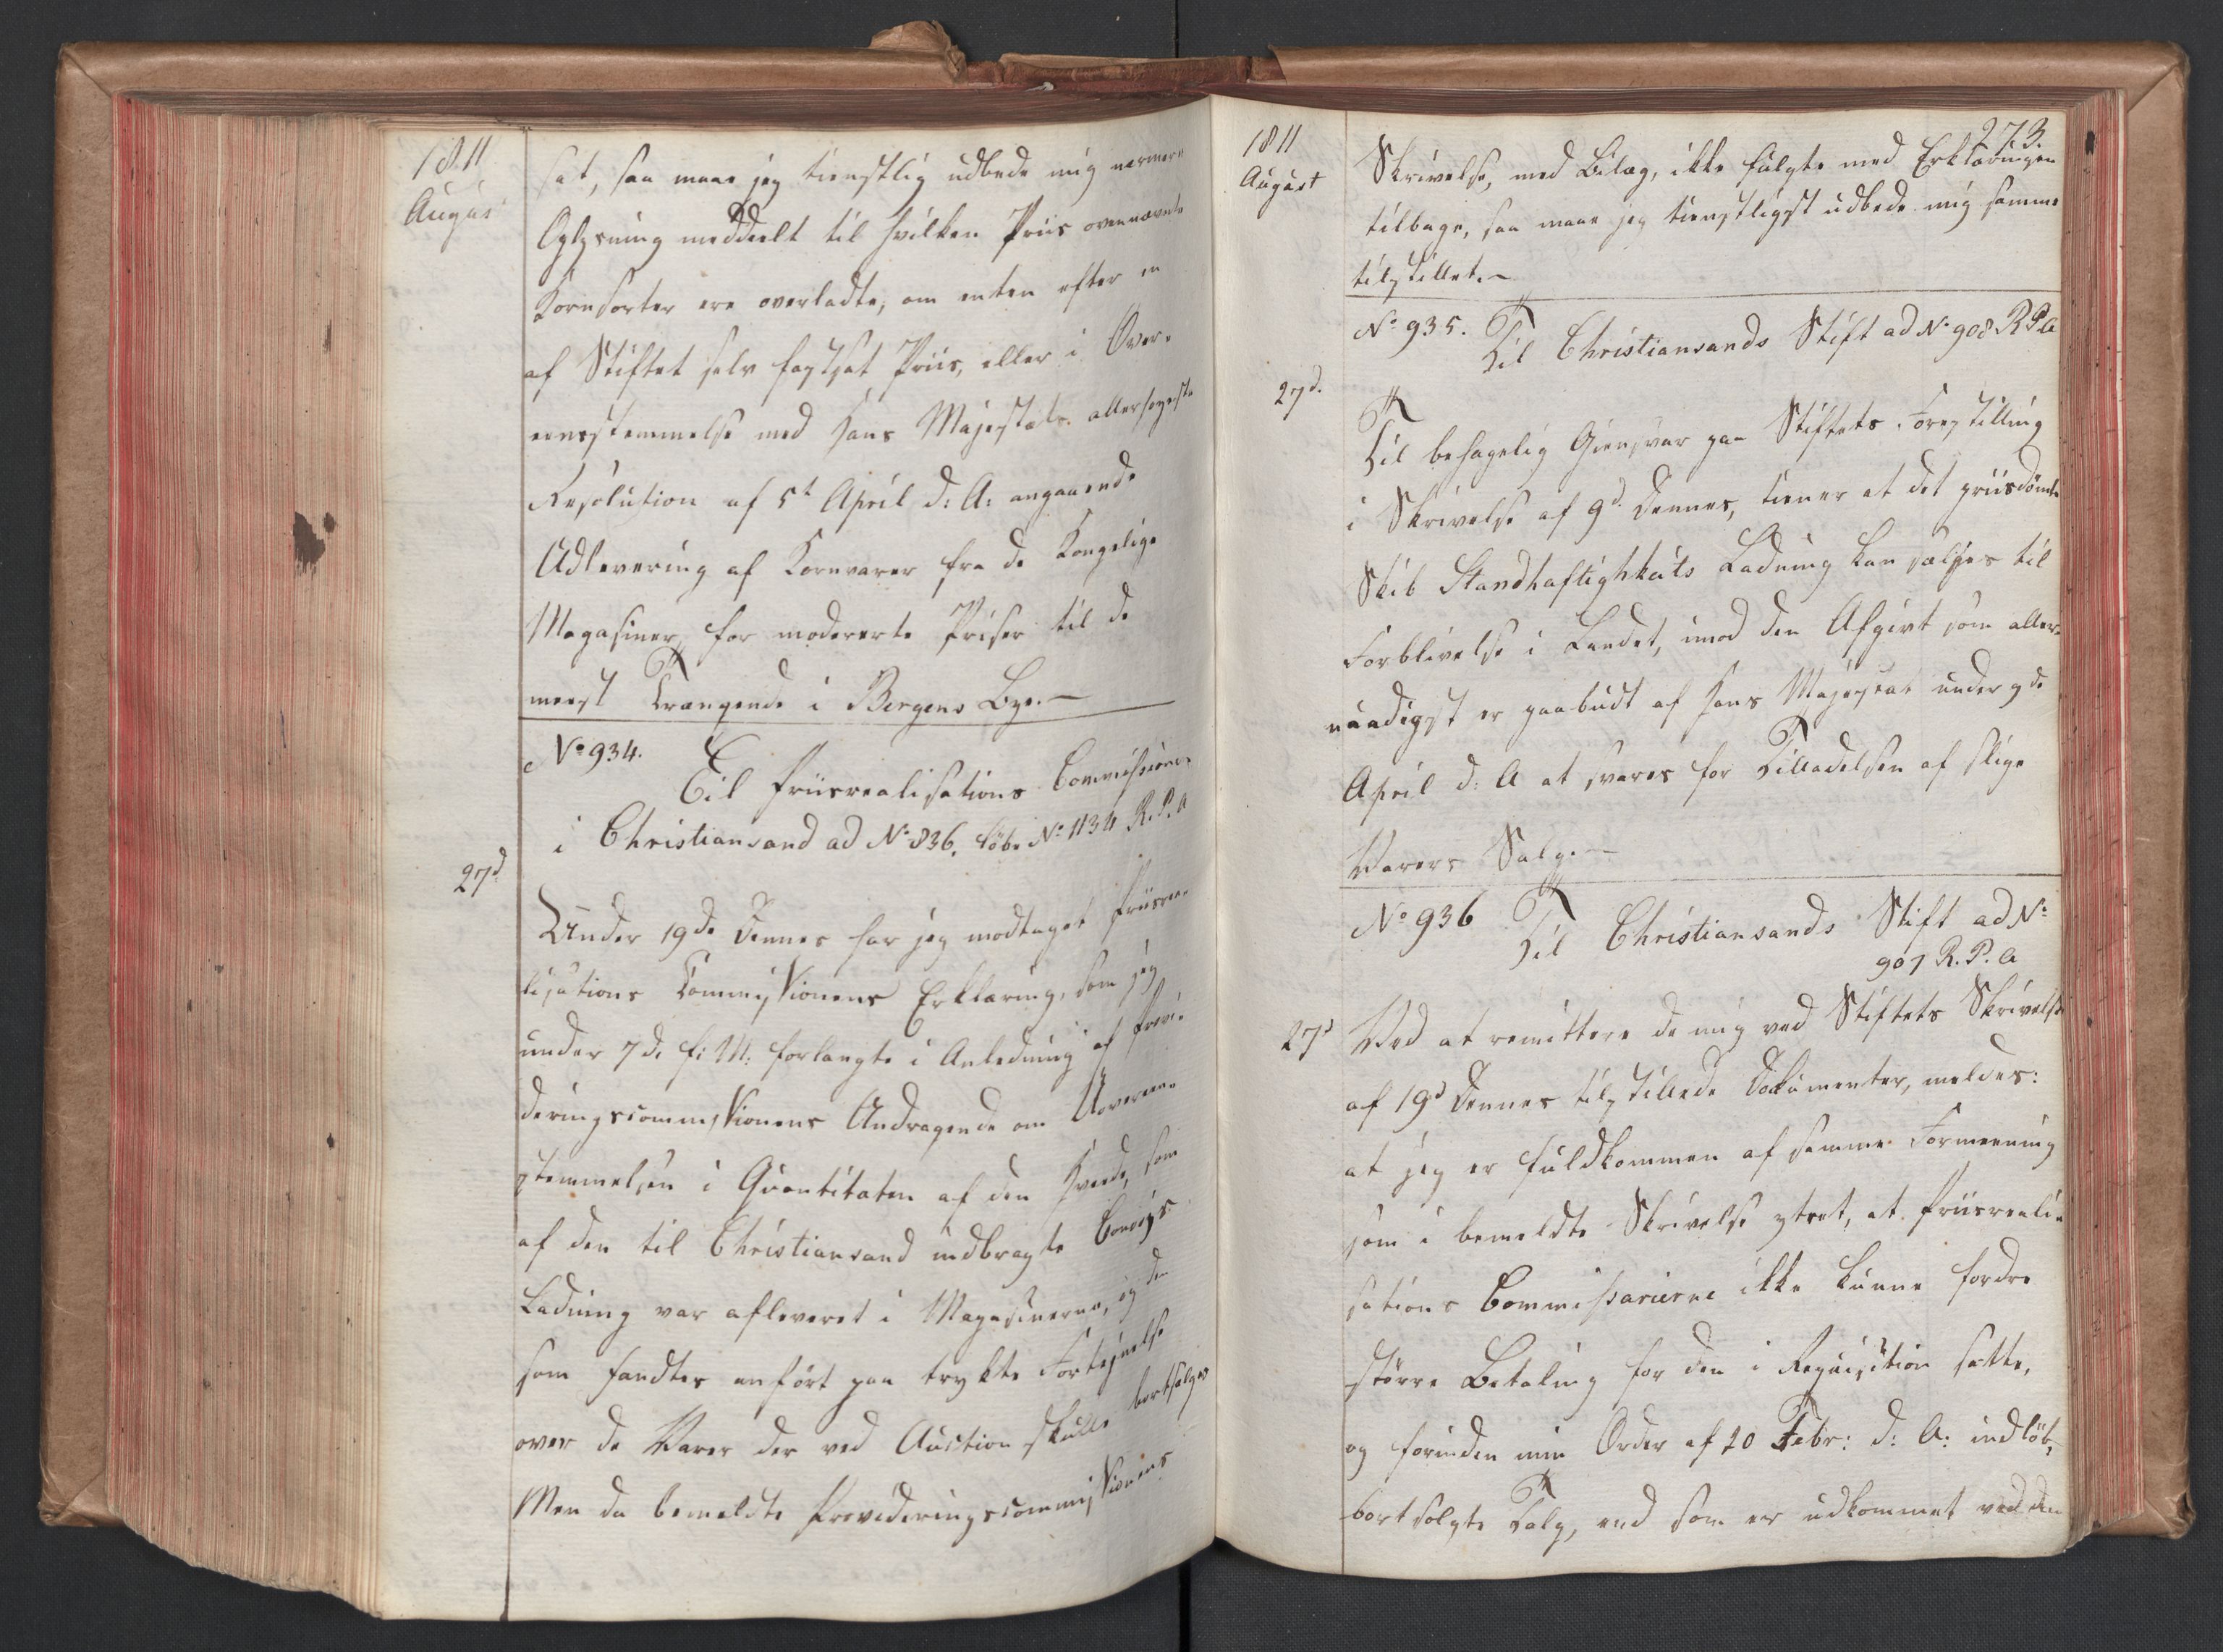 1811
August
sat, saa maae jeg tienstlig udbede mig nærmere
Oplysning meddeelt til hvilken Priis ovennævnte
Kornsorter ere overladte, om enten efter en
af Stiftet selv fastsat Priis, eller i Over-
eensstemmelse med Hans Majestæts allerhøyeste
Resolution af 5t April d: A: angaaende
Udlevering af Kornvarer fra de Kongelige
Magasiner, for modererte Priser til de
meest Trængende i Bergens Bye.-
No 934.
Til Priisrealisations Commissionen
i Christiansand ad No 836. Löbe No 1134 R. P. A
27d
Under 19de Dennes har jeg modtaget Priisrea-
lisations Commissionens Erklæring, som jeg
under 7de f: M: forlangte i Anledning af Provi-
deringscommissionens Andragende om Uovereens-
stemmelsen i Qvantitæten af den Hvede, som
af den til Christiansand indbragte
Ladning var afleveret i Magasinerne, og den
som fandtes anført paa trykte Fortegnelse
over de Varer der ved Auction skulle bortsælges
Men da bemeldte Provideringscommissionens
273.
1811
August
Skrivelse, med Bilag, ikke fulgte med Erklæringen
tilbage, saa maae jeg tienstligst udbede mig samme
tilstillet.-
No 935.
Til Christiansands Stift ad No 908 R P. A
27d.
Til behagelig Giensvar paa Stiftets Forestilling
i Skrivelse af 9d Dennes, tiener at det priisdömte
Skib Standhaftighheits Ladning kan sælges til
Forblivelse i Landet, imod den Afgivt som aller-
naadigst er paabudt af Hans Majestæt under 9de
April d: A at svares for Tilladelsen af slige
Varers Salg.-
No 936
Til Christiansands Stift ad No
907 R. P. A
27d
Ved at remittere de mig ved Stiftets Skrivelse
af 19d Dennes tilstillede Dokumenter, meldes:
at jeg er fuldkommen af samme Formeening
som i bemeldte Skrivelse ytret, at Priisreali-
sations Commissariene ikke kunne fordre
större Betaling for den i Reqvisition satte,
og forinden min Order af 20 Febr: d: A: indlöb,
bortsolgte Talg, end som er udkommet ved den